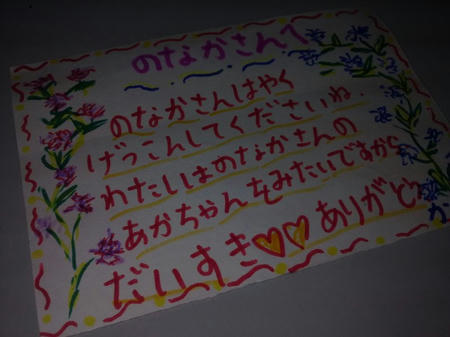 のなかさんへ
のなかさんはやく
げっこんしてくださいね.
わたしはのなかさんの
あかちゃんをみたいですから
だいすき♡♡ありがとう